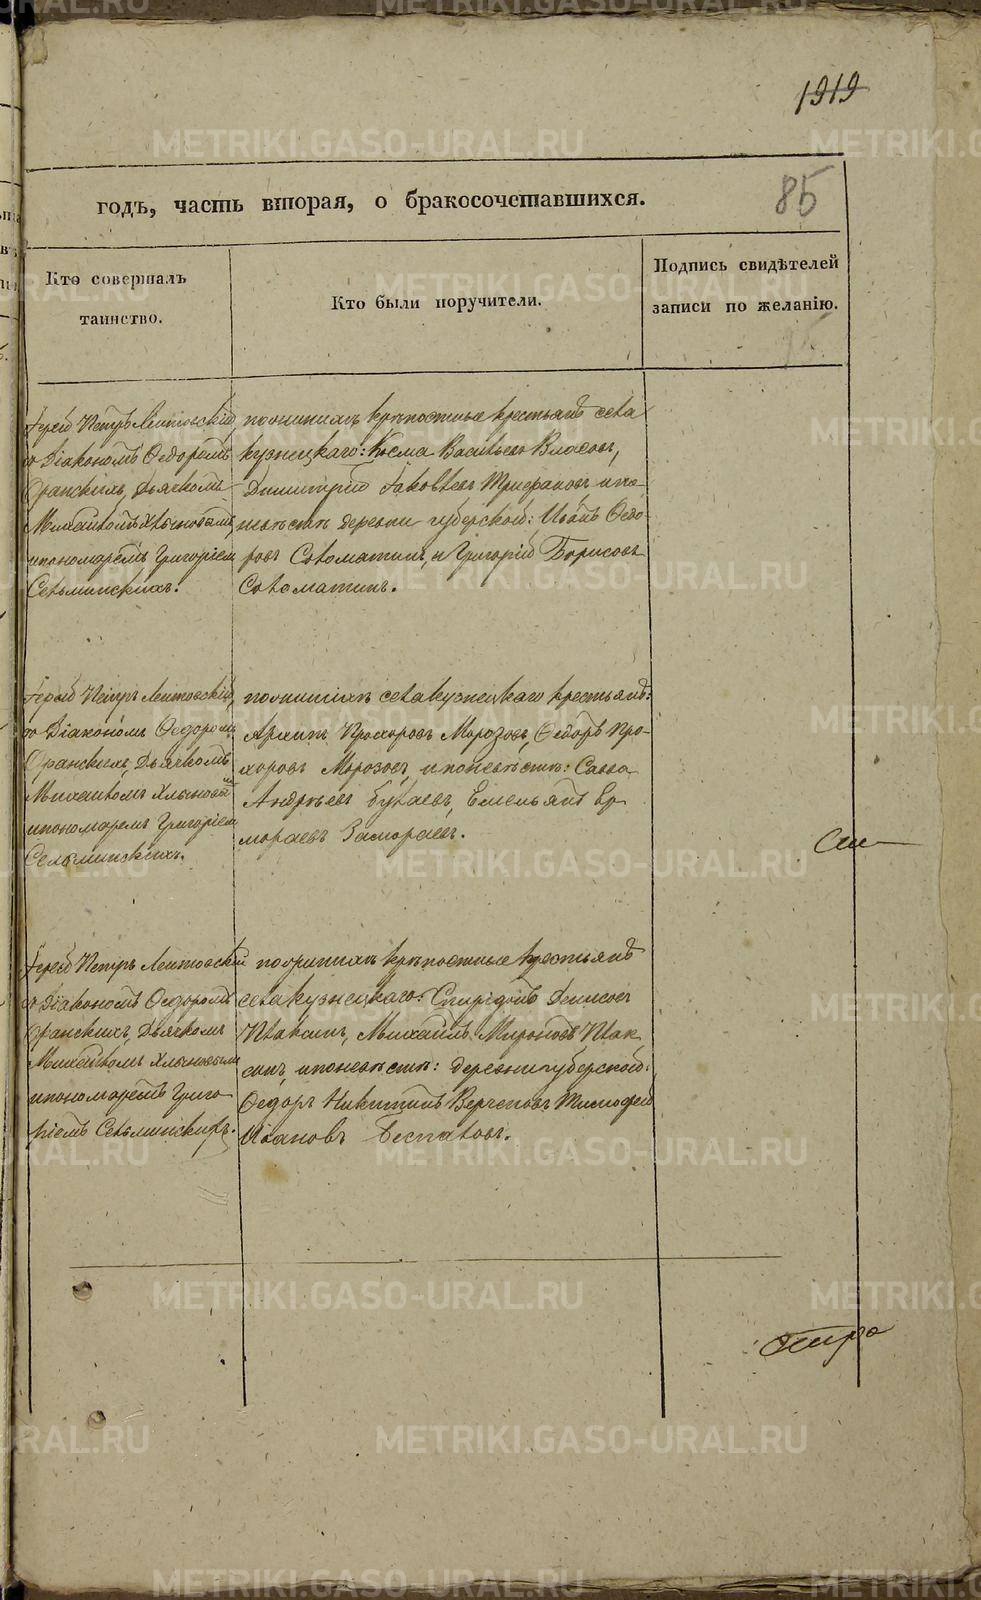 1919
85
годъ, часть вторая, о бракосочетавшихся.
Кто совершалъ
таинство.
Кто были поручители.
Подпись свидѣтелей
записи по желанію.
Іерей Петръ Литовскій
со Діакономъ Ѳедоромъ
Оранскихъ, Дьячкомъ
Михаиломъ Хлыновымъ
и пономаремъ Григоріем
Сельминскихъ.
по женихѣ крѣпостные крестьянѣ села
кузнецкаго: Косма Васильевъ Власовъ,
Димитрій Іаковлевъ Трифановъ и по не-
вѣстѣ деревни губерской: Иванъ Ѳедо-
ровъ Соломатинъ, и Григорій Борисовъ
Соломатинъ.
Іерей Петръ Литовскій,
со Діакономъ Ѳедоромъ
Оранскихъ, Дьячкомъ
Михаиломъ Хлыновымъ
и пономаремъ Григоріем
Сельминскихъ.
по женихѣ села кузнецкаго крестьянѣ:
Архипъ Прохоровъ Морозовъ, Ѳедоръ Про-
хоровъ Морозовъ, и по невѣстѣ: Савва
Андреевъ Емельянъ Ер
мораевъ Замораевъ.
Сии
Іерей Петръ Литовскій
со Діакономъ Ѳедоромъ
Оранскихъ, Дьячкомъ
Михаиломъ Хлыновымъ
и пономаремъ Григо
ріемъ Сельминскихъ.
по женихѣ крѣпостные крестьянѣ
села кузнецкаго: Спиридонъ Денисовъ
Плаксинъ, Михаилъ Мироновъ Плак
синъ, и по невѣстѣ: деревни губерской:
Ѳедоръ Никитинъ Тимофей
Ивановъ Беспаловъ.
METRIKI.GASO-URAL.RU